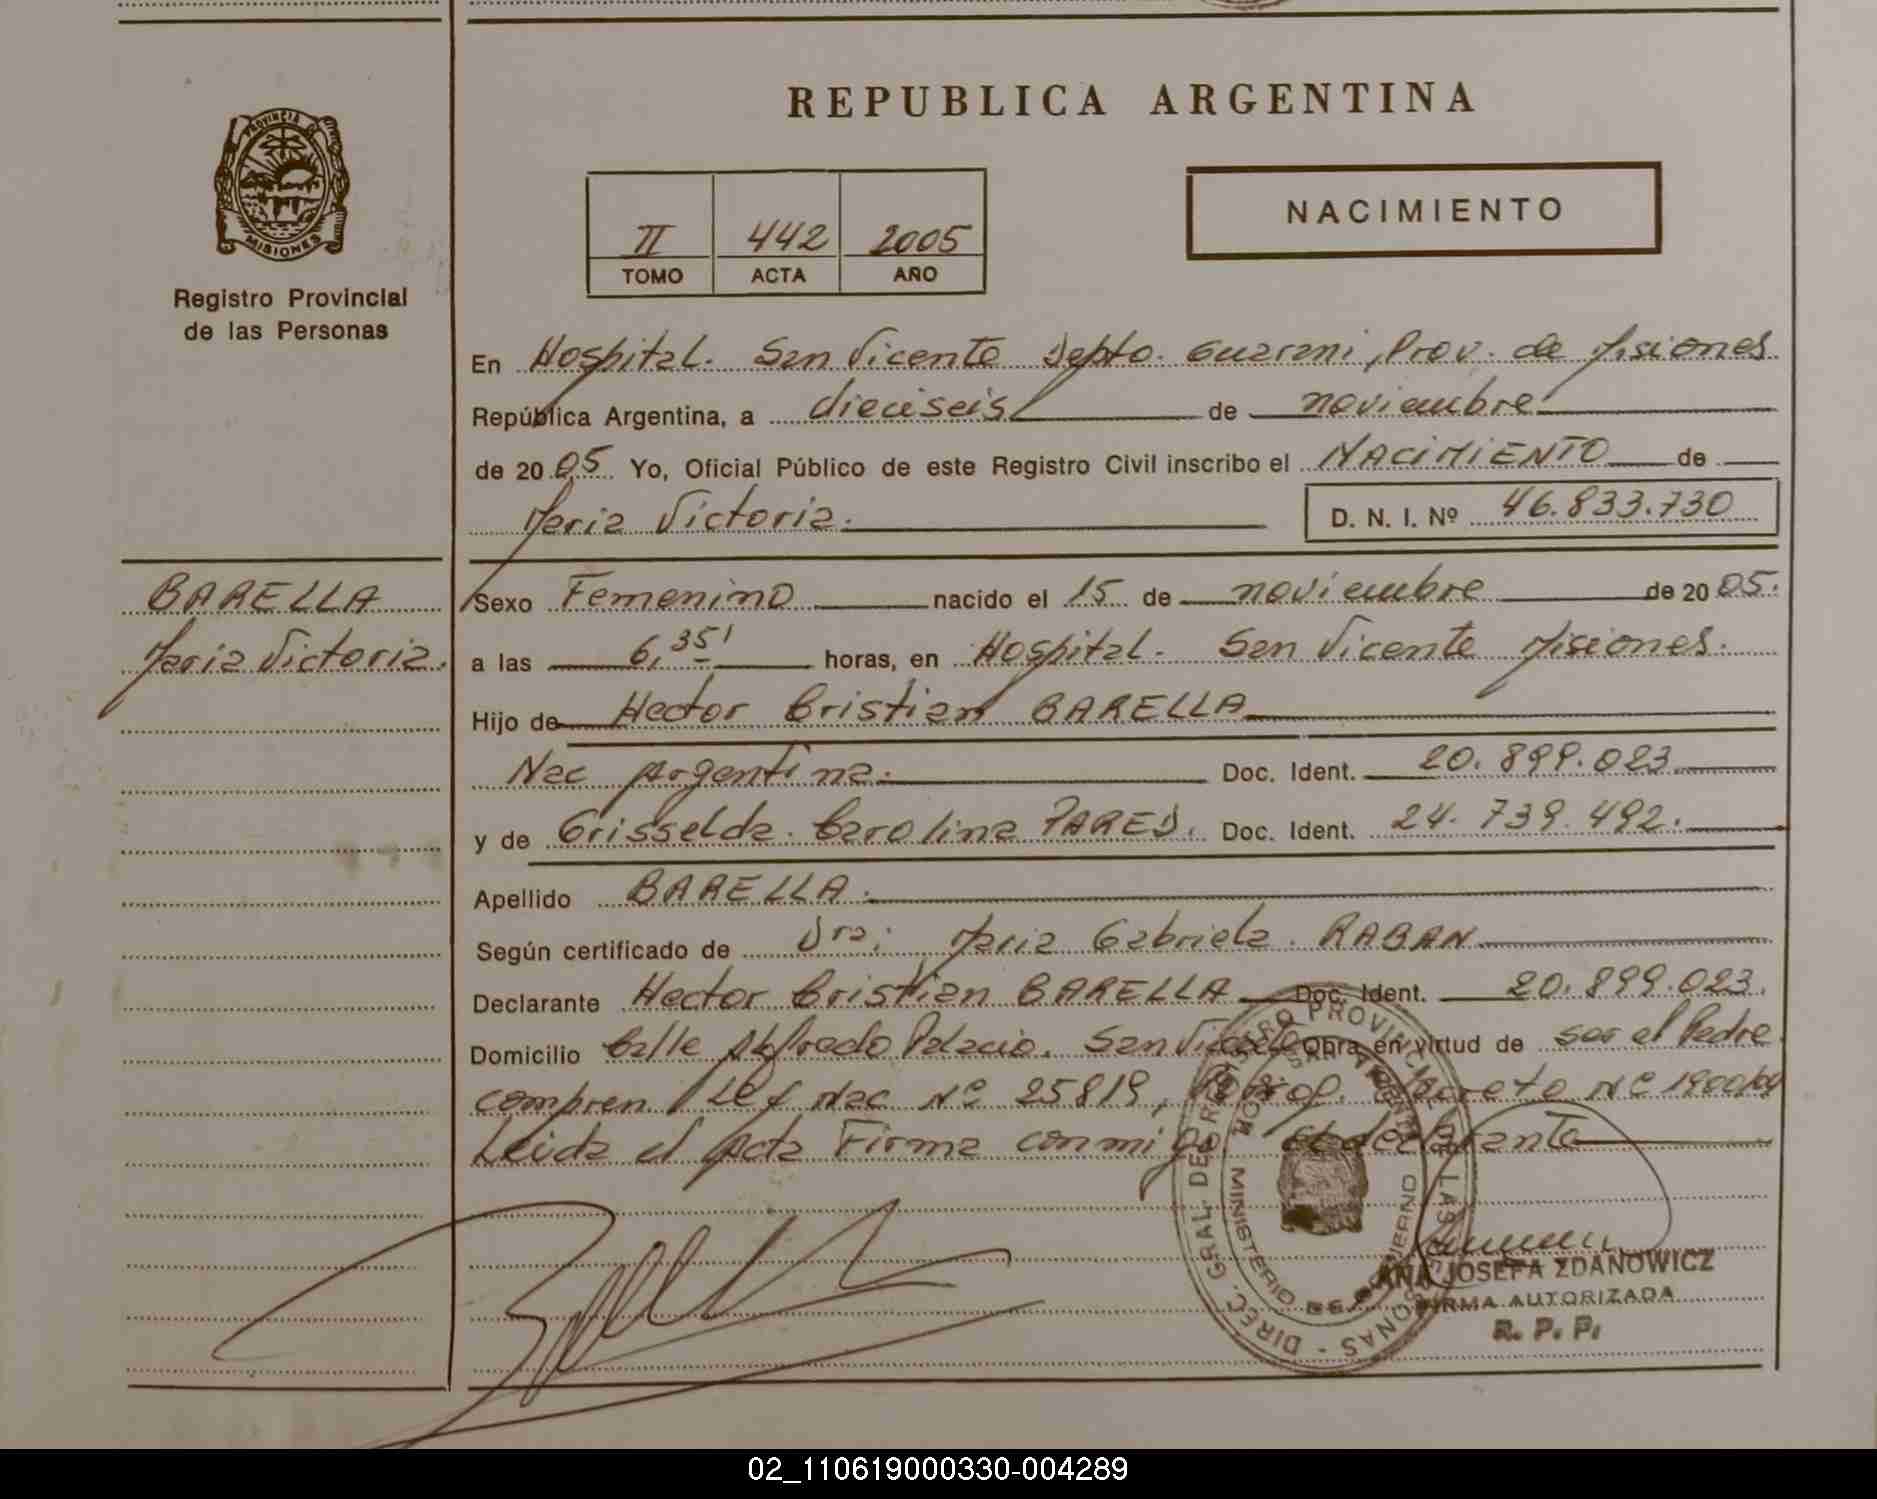 REPUBLICA ARGENTINA
PROVINCIA DE
MISIONES
Registro Provincial
de las Personas
II 442 2005
TOMO ACTA AÑO
NACIMIENTO
En Hospital. San Vicente Depto. Guarani, Prov. de Misiones
República Argentina, a dieciseis de noviembre
de 20 05 Yo, Oficial Público de este Registro Civil inscribo el NACIMIENTO de
Maria Victoria. D. N. I. Nº 46.833.730
BARELLA
Maria Victoria.
Sexo Femenino nacido el 15 de noviembre de 20 05.
a las 6,35' horas, en Hospital. San Vicente Misiones.
Hijo de Hector Cristian BARELLA
Nac Argentina. Doc. Ident. 20.899.023
y de Grisselda. Carolina PARED. Doc. Ident. 24.739.492.
Apellido BARELLA.
Según certificado de Dra: Maria Gabriela. RABAN
Declarante Hector Cristian BARELLA Doc. Ident. 20.899.023.
Domicilio Calle Alfredo Palacio. San Vicente Obra en virtud de ser el Padre
compren Ley Nac Nº 25819, Decreto Nº
Leida el Acta Firma conmigo el declarante
DIREC. GRAL. DEL REGISTRO PROVINCIAL DE LAS PERSONAS
MINISTERIO DE GOBIERNO
ANA JOSEFA ZDANOWICZ
FIRMA AUTORIZADA
R. P. P.
02_110619000330-004289